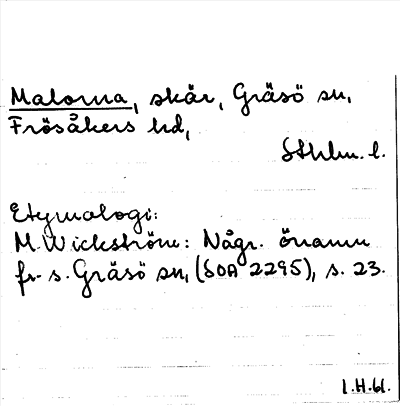 Malorna, skär, Gräsö sn,
Frösåkers hd,
Sthlm. l.
Etymologi:
M. Wickström: Någr. önamn
fr. s. Gräsö sn, (SOA 2295), s. 23.